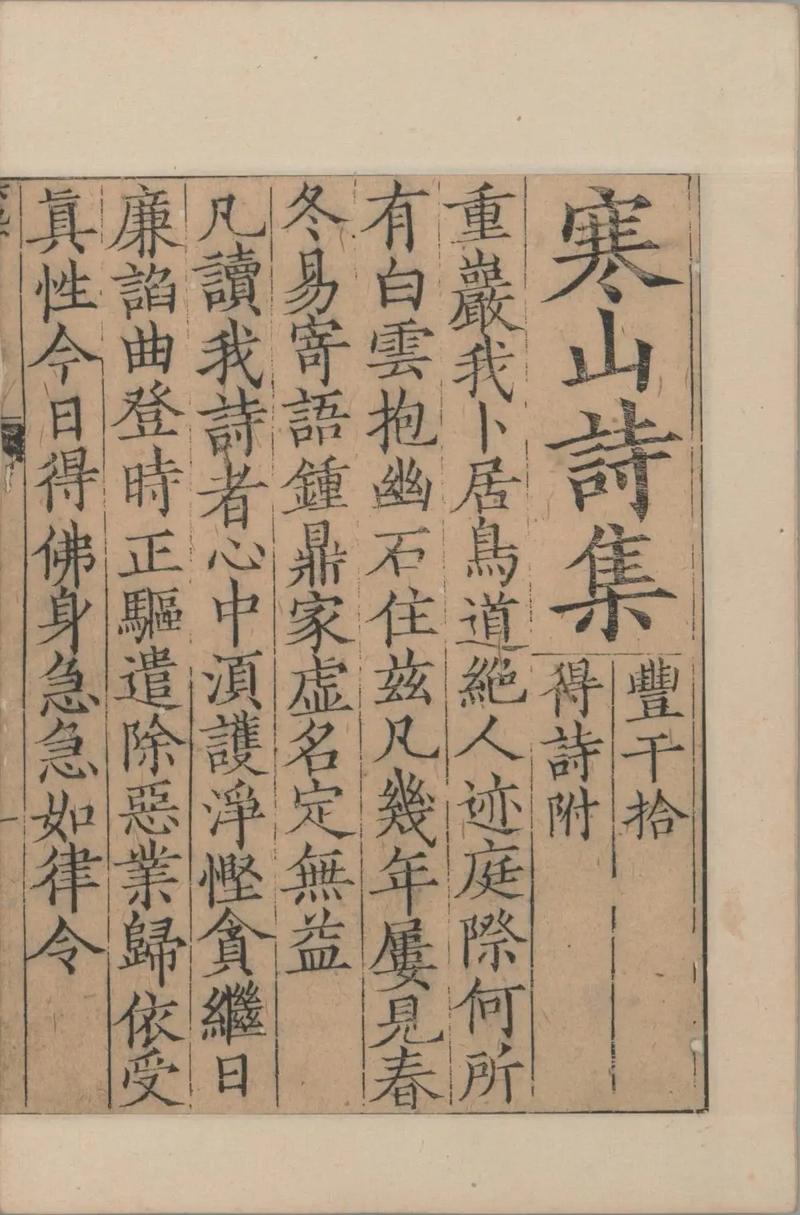 寒山詩集
豐干拾
得詩附
重巖我卜居鳥道絶人迹庭際何所
有白雲抱幽石住玆凡幾年屢見春
冬易寄語鍾鼎家虛名定無益
凡讀我詩者心中湏護淨慳貪繼日
廉諂曲登時正驅遣除惡業歸依受
真性今日得佛身急急如律令